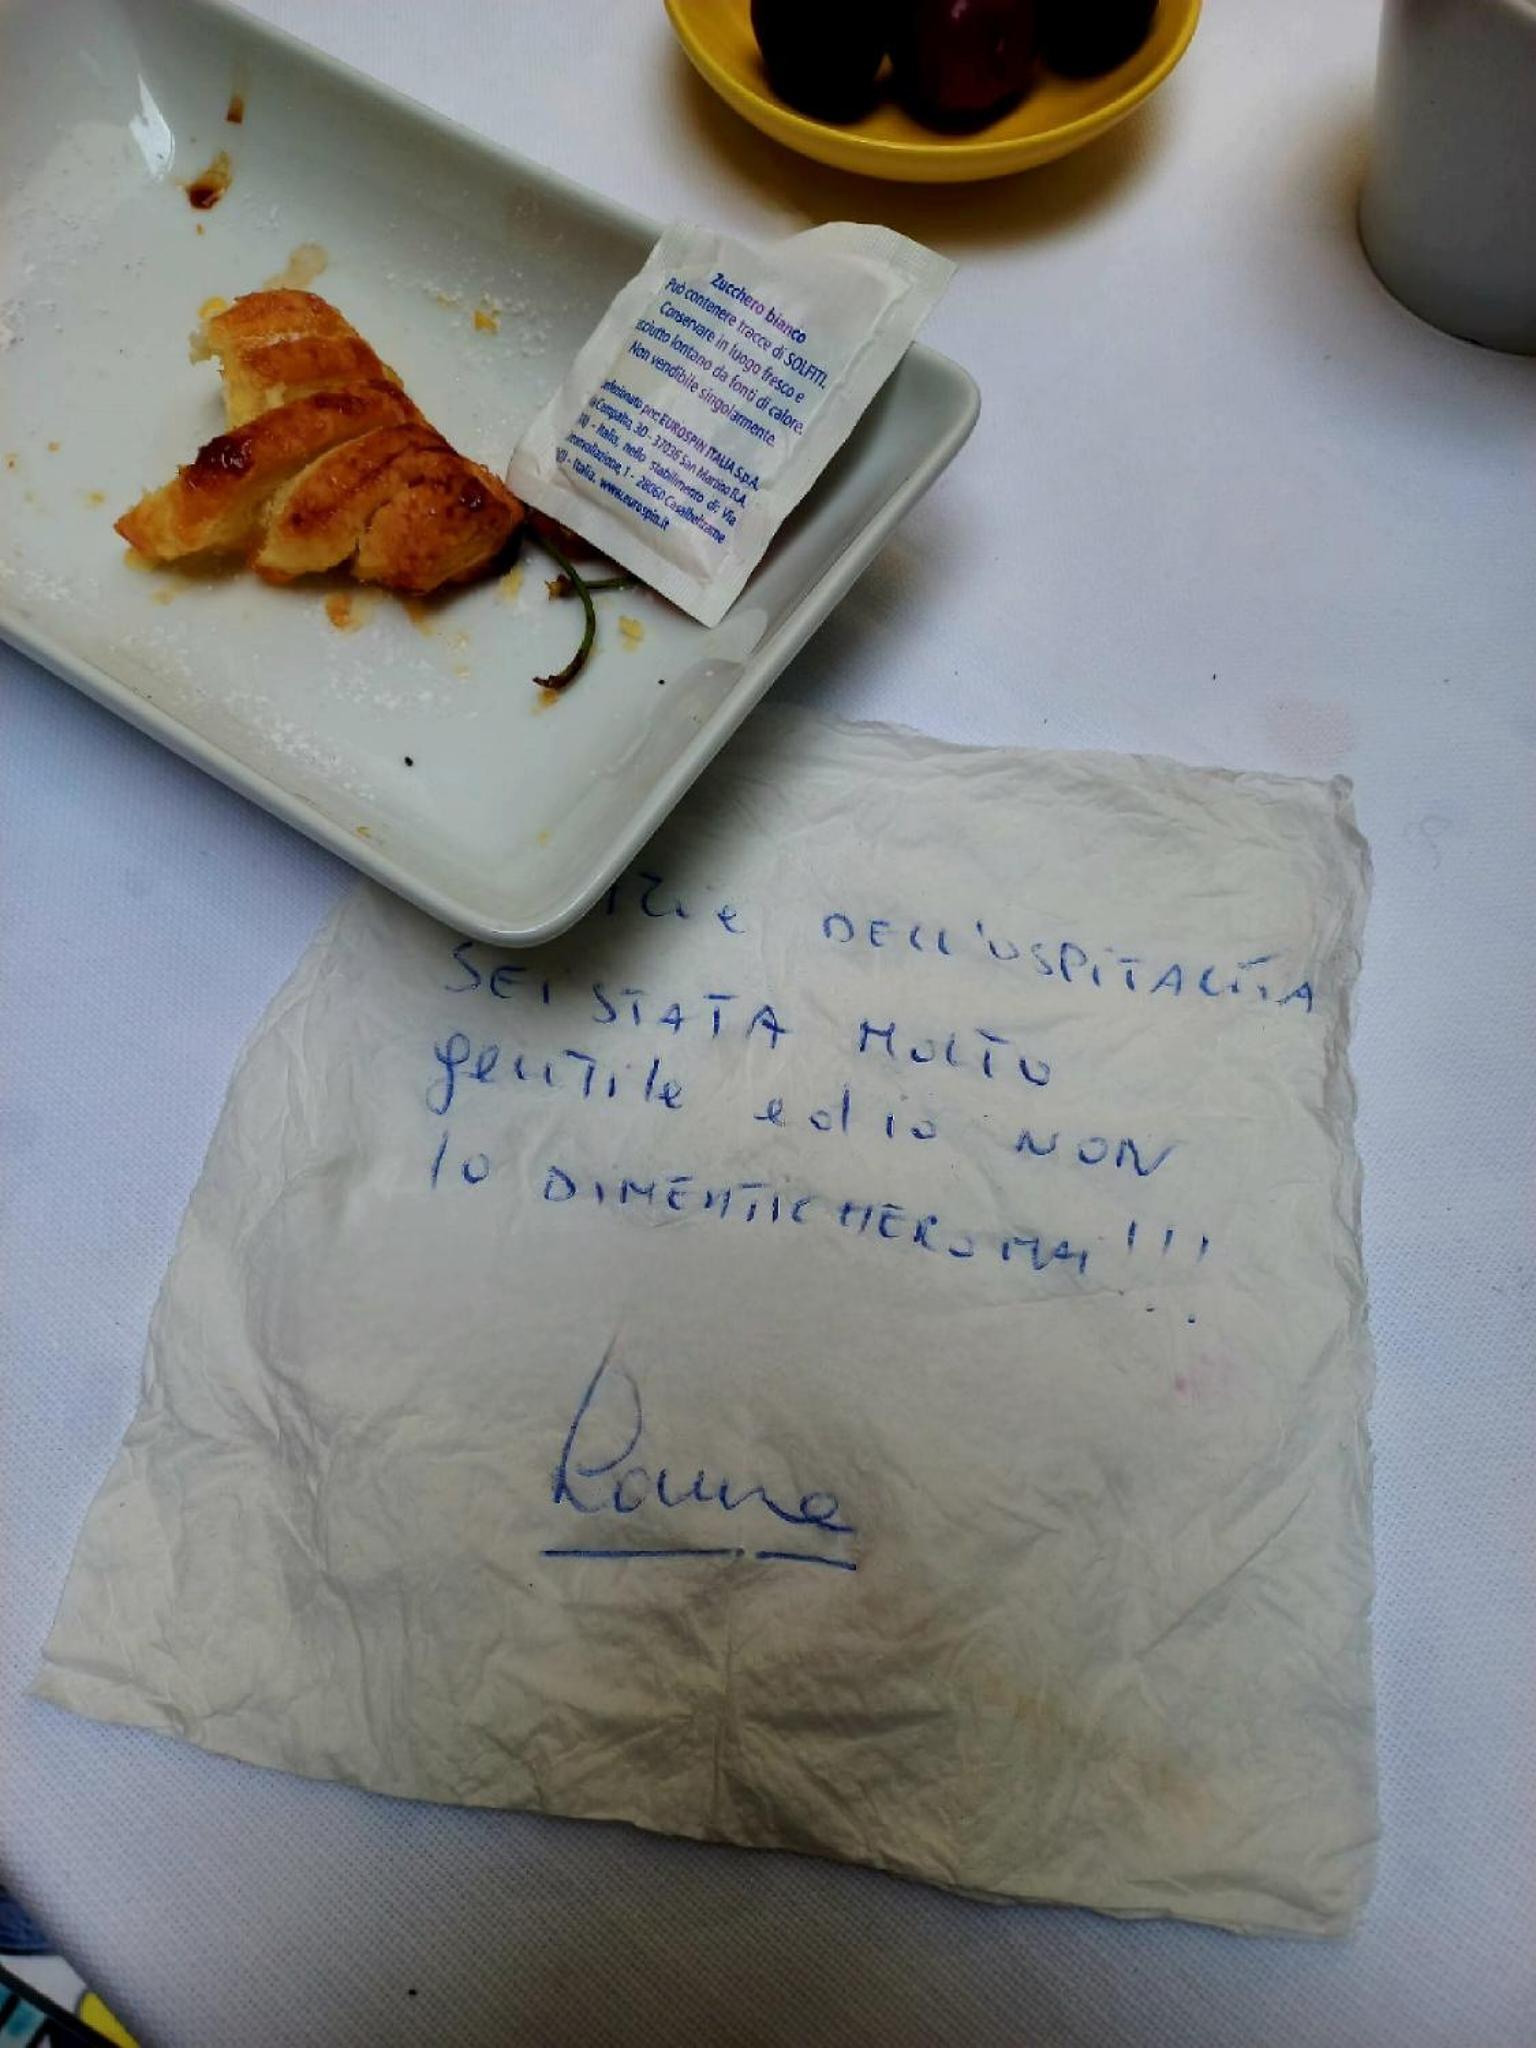 Zucchero bianco
Può contenere tracce di SOLFITI.
Conservare in luogo fresco e
asciutto lontano da fonti di calore.
Non vendibile singolarmente.
confezionato per: EUROSPIN ITALIA S.p.A.
Campalto, 3D - 37036 San Martino B.A.
- Italia, nello stabilimento di: Via
1 - 28060 Casalbeltrame
- Italia. www.eurospin.it
DELL'OSPITALITA
SEI STATA MOLTO
gentile ed io NON
lo DIMENTICHERO MAI !!!